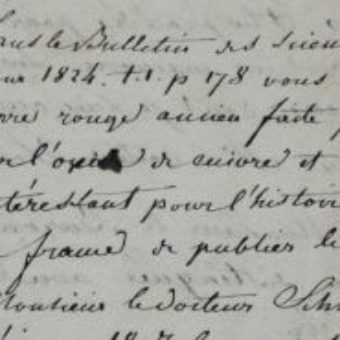 Dans le Bulletin des Scien
1824. t. 1. p 178 vous
rouge ancien faite
l'oxide de cuivre et
téressant pour l'histoi
de publier le
Monsieur le docteur Sch